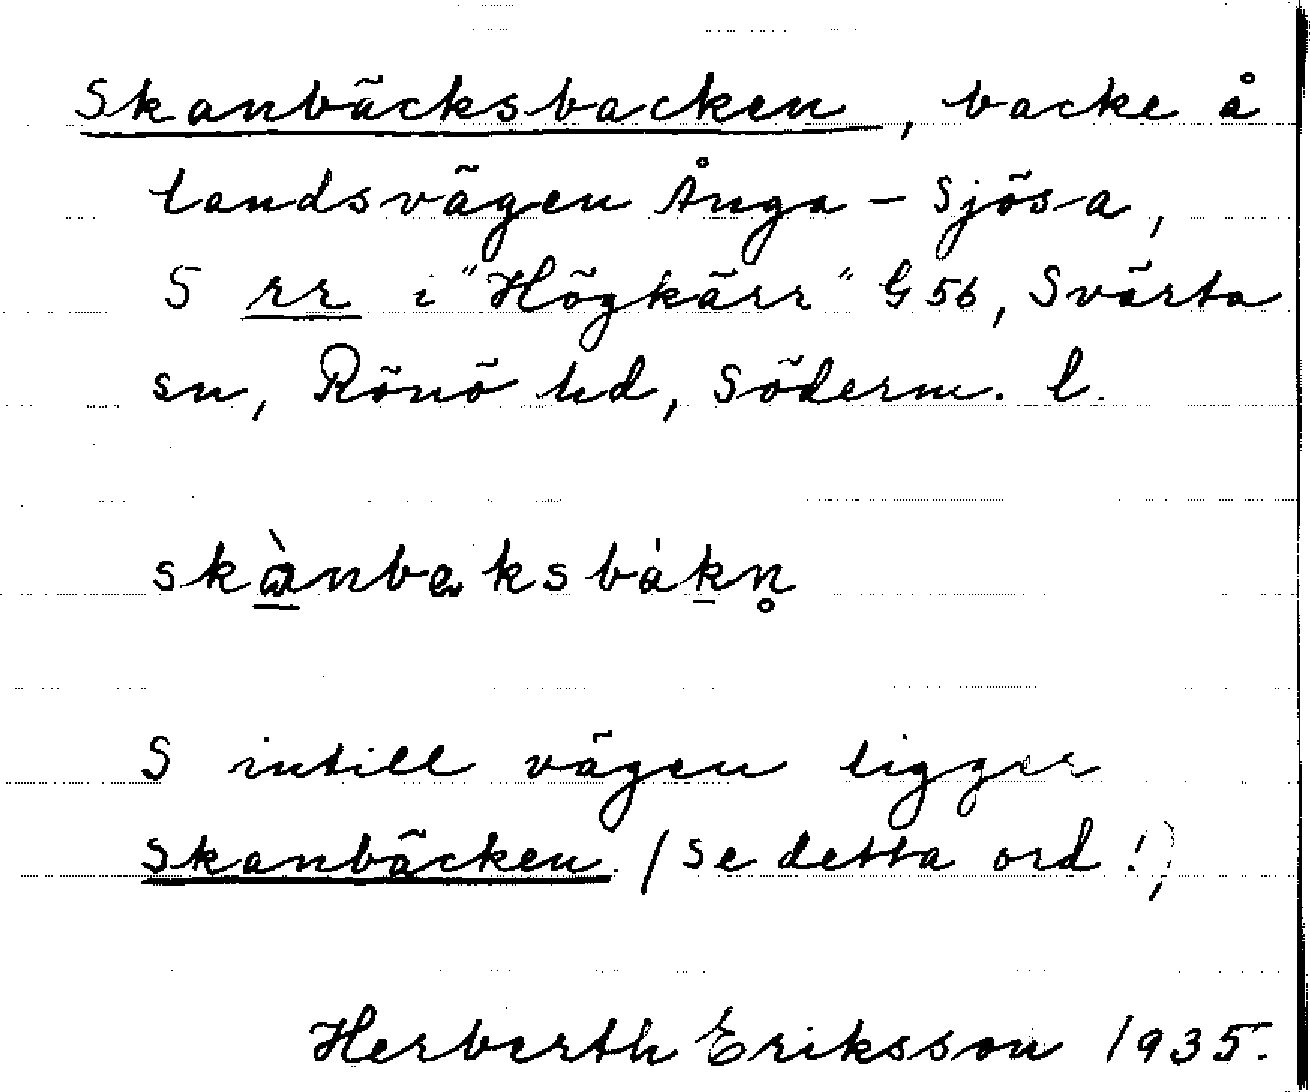 Skanbäcksbacken, backe å
landsvägen Ånga - Sjösa,
S rr i "Högkärr" G 56, Svärta
sn, Rönö hd, Söderm. l.
skànbæksbákn̥
S intill vägen ligger
Skanbäcken (se detta ord!)
Herberth Eriksson 1935.